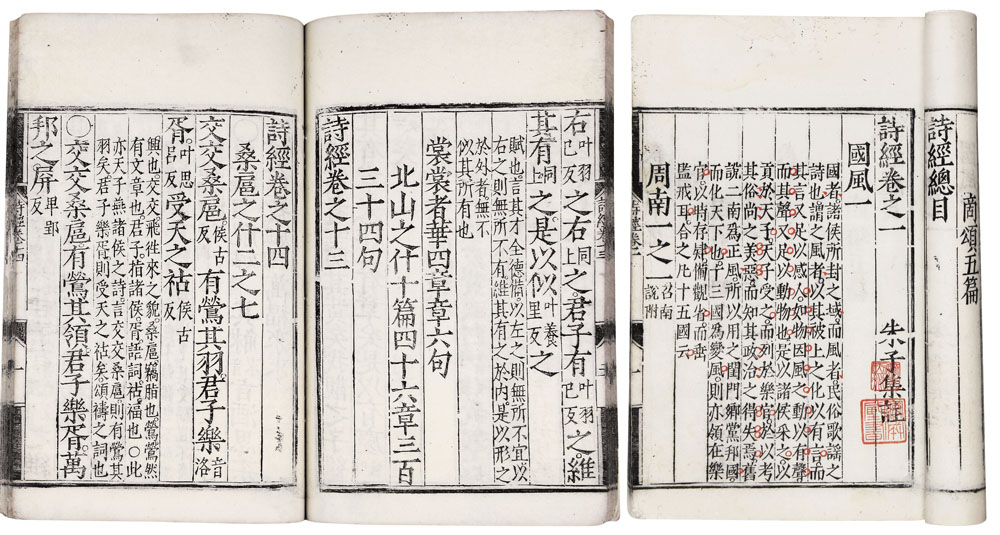 頌五篇
詩經總目
詩經卷之一 朱子集註
國風一
國者諸侯所封之域而風者民俗歌謠之
詩也謂之風者以其被上之化以有言而
其言又足以感人如物因風之動以有聲
而其聲又足以動物也是以諸侯采之以
貢於天子天子受之而列於樂官於以考
其俗尚之美惡而知其政治之得失焉舊
說二南為正風所以用之閨門鄉黨邦國
而化天下也十三國為變風則亦領在樂
官以時存肄備觀省而垂
監戒耳合之凡十五國云
周南一之一 召南說附
右叶羽已反之右同上之君子有叶羽已反之維
其有同上之是以似叶養里反之
賦也言其才全德備以左之則無所不宜以
右之則無所不有維其有之於內是以形之
於外者無不
似其所有也
裳裳者華四章章六句
北山之什十篇四十六章三百
三十四句
詩經卷之十三
詩經卷之十四
桑扈之什二之七
交交桑扈侯古反有鶯其羽君子樂音洛
胥叶思呂反受天之祜侯古反
興也交交飛往來之貌桑扈竊脂也鶯鶯然
有文章也君子指諸侯胥語詞祜福也○此
亦天子燕諸侯之詩言交交桑扈則有鶯其
羽矣君子樂胥則受天之祜矣頌禱之詞也
○交交桑扈有鶯其領君子樂胥萬
邦之屏卑郢反